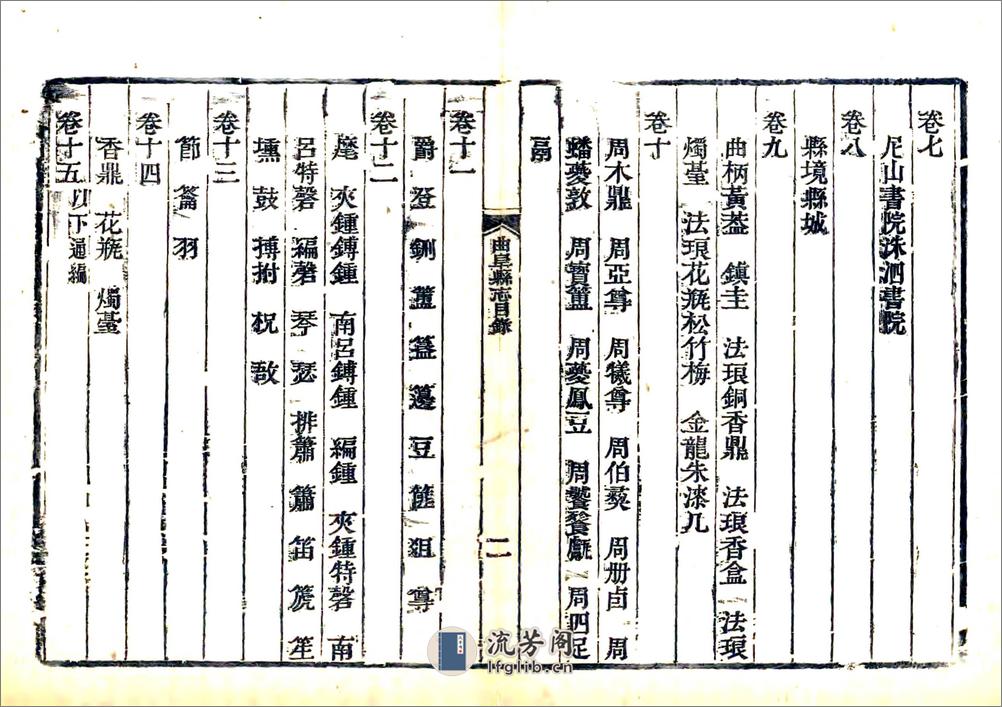 卷七
尼山書院洙泗書院
卷八
縣境縣城
卷九
曲柄黃蓋 鎮圭 法琅銅香鼎 法琅香盒 法琅
燭臺 法琅花瓶松竹梅 金龍朱漆几
卷十
周木鼎 周亞尊 周犧尊 周伯彝 周冊卣 周
蟠夔敦 周寶簠 周夔鳳豆 周饕餮甗 周四足
鬲
曲阜縣志目錄
二
卷十一
爵 登 鉶 簠 簋 籩 豆 篚 俎 尊
卷十二
麾 夾鍾鎛鍾 南呂鎛鍾 編鍾 夾鍾特磬 南
呂特磬 編磬 琴 瑟 排簫 簫 笛 篪 笙
壎 鼓 搏拊 柷 敔
卷十三
節 籥 羽
卷十四
香鼎 花瓶 燭臺
卷十五以下通編
流芳阁
lfglib.cn